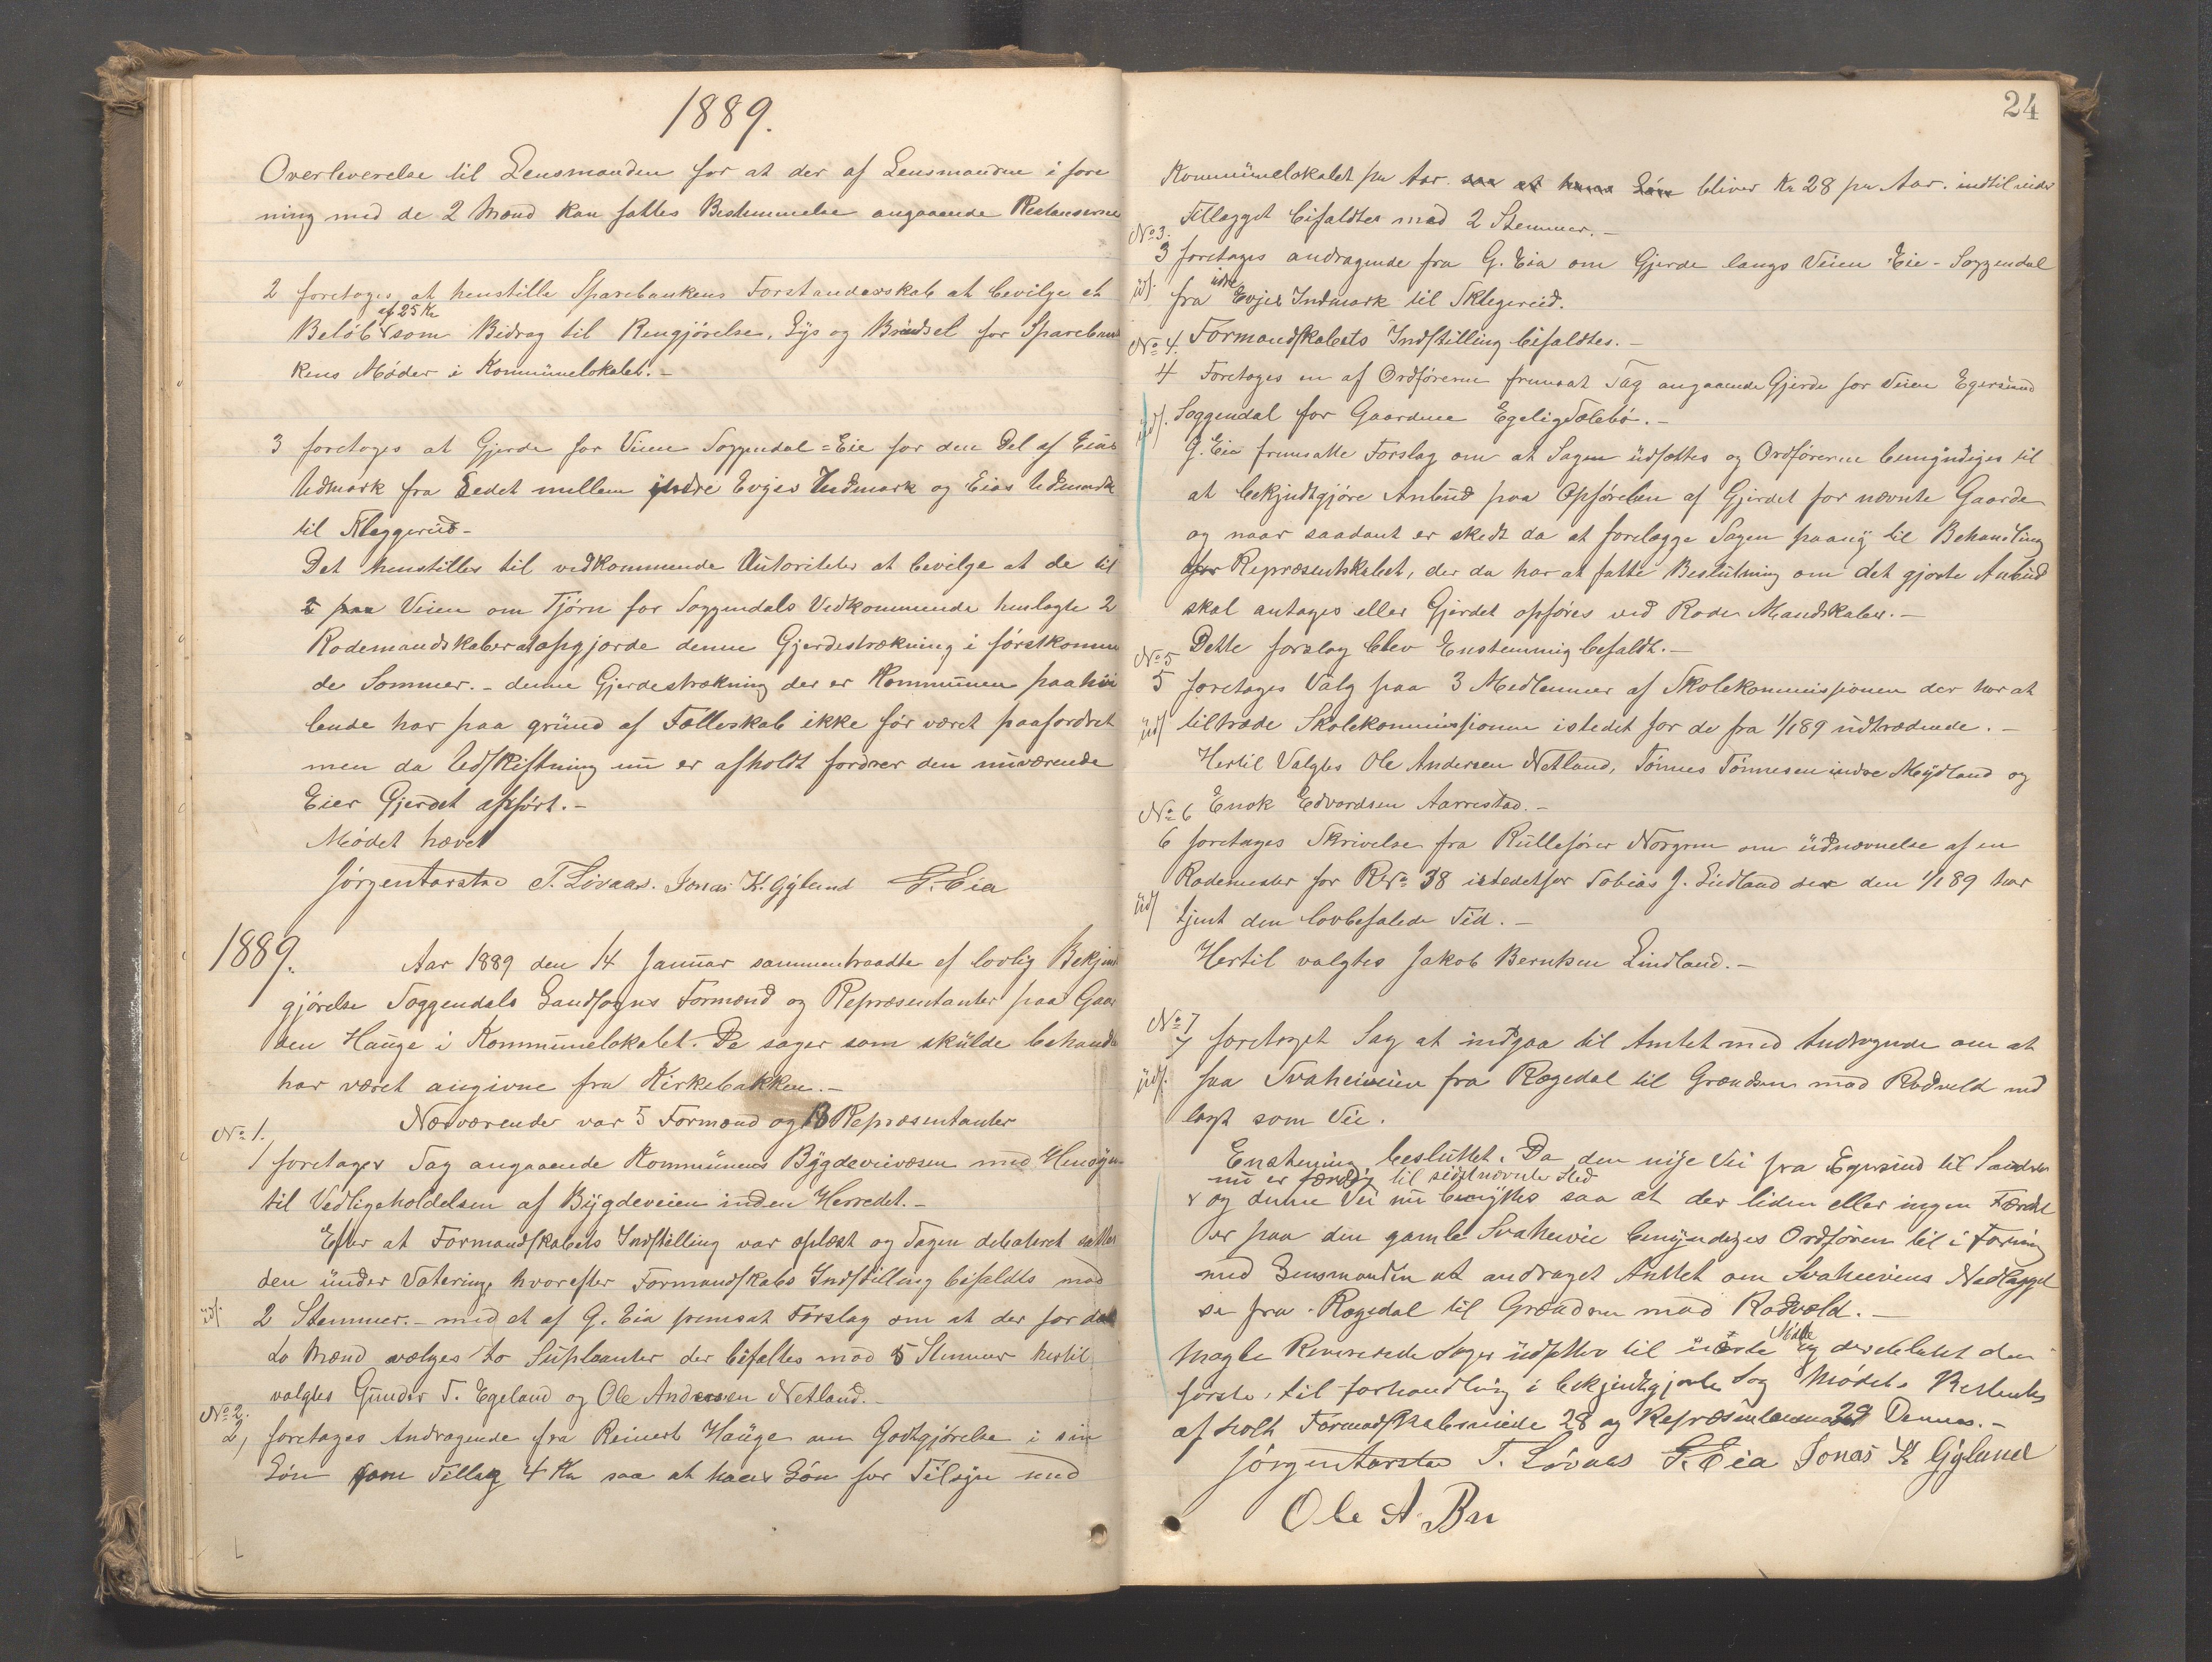 1889.
Overleverelse til Lensmanden for at der af Lensmanden i fore
ning med de 2 Mænd kan fattes Bestemmelse angaaende Restanserne
2 foretoges at henstille Sparebankens Forstanderskab at bevilge et
af 25 Kr
Beløb som Bidrag til Rengjørelse, Lys og Brændsel for Spareban
kens Møder i Kommunelokalet.-
3 foretoges at Gjerde for Veien Soggendal=Eie for den Del af Eias
Udmark fra Ledet mellem indre Evjes Indmark og Eias Udmark
til Kleggerud-
Det henstilles til vedkommende Autoriteter at bevilge at de til
paa Veien om Tjørn for Soggendals Vedkommende henlagte 2
Rodemandskaber at opgjorde denne Gjerdestrækning i førstkommen
de Sommer.- denne Gjerdestrækning der er Kommunen paahvi
lende har paa grund af Fælleskab ikke før været paafordret
men da Udskiftning nu er afholdt fordrer den nuværende
Eier Gjerdet opført.-
Mødet hævet
Jørgen Aarstad T. Løvaas. Jonas K. Gyland G. Eia
1889.
Aar 1889 den 14 Januar sammentraadte ef lovlig Bekjendt
gjørelse Soggendals Landsogns Formænd og Repræsentanter paa Gaar
den Hauge i Kommunelokalet. De sager som skulde behand
har været angivne fra Kirkebakken.-
Nærværender var 5 Formænd og 13 Repræsentanter
No 1.
1 foretages Sag angaaende Kommunens Bygdeveivæsen med Hensyn
til Vedligeholdelsen af Bygdeveien inden Herredet.-
Efter at Formandskabets Indstilling var oplæst og Sagen debateret sattes
den under Votering hvorefter Formandskabs Indstilling bifaldts mod
udf. 2 Stemmer.- med et af G. Eia fremsat Forslag om at der for de
to Mænd vælges to Suplanter der bifaltes mod 5 Stemmer hertil
valgtes Gunder T. Egeland og Ole Andersen Netland.-
No 2.
2, foretages Andragende fra Reinert Hauge om Godtgjørelse i sin
Løn som Tillæg 4 Kr saa at hans Løn for Tilsyn med
24
Kommunelokalet pr Aar. saa at hans Løn bliver Kr 28 pr Aar. indtil videre
Tillægget bifaldtes mod 2 Stemmer.-
No 3.
3 foretages andragende fra G. Eia om Gjerde langs Veien Eie-Soggendal
idre
udf. fra Evjes Indmark til Klegereid.
No 4. Formandskabets Indstilling bifaldtes.-
4 Foretages en af Ordføreren fremsat Sag angaaende Gjerde for Veien Egersund
udf. Soggendal for Gaardene Egelig Sælebø.-
G. Eia fremsatte Forslag om at Sagen udsættes og Ordføreren bemyndiges til
at bekjendtgjøre Anbud paa Opførelsen af Gjerdet for nævnte Gaarde
og naar saadant er skedt da at forelægge Sagen paany til Behandling
for Repræsentskabet, der da har at fatte Beslutning om det gjorte Anbud
skal antages eller Gjerdet opføres ved Rode Mandskaber.-
Dette forslag blev Enstemmig befaldt.-
No 5
5 foretages Valg paa 3 Medlemmer af Skolekommissionen der har at
udf tiltræde Skolekommissionen istedet for de fra 1/1 89 udtrædende.-
Hertil Valgtes Ole Andersen Netland, Tønnes Tønnesen indre Mydland og
No 6 Enok Edvardsen Aarrestad.-
6 foretages Skrivelse fra Rullefører Norgren om udnævnelse af en
Rodemester for R No 38 istedetfor Tobias J. Lindland der den 1/1 89 har
udf tjent den lovbefalede Tid.-
Hertil valgtes Jakob Berntsen Lindland.-
No 7
7 foretaget Sag at indgaa til Amtet med Andragende om at
udf. faa Svaheiveien fra Rægedal til Grændsen mod Rodvelt ned
lagt som Vei.
Enstemmig besluttet. Da den nye Vei fra Egersund til
nu er færdig til sidstnævnte Sted
x og denne Vei nu benyttes saa at der liden eller ingen Færdsel
er paa den gamle Svaheivei bemyndiges Ordføren til i Forening
med Lensmanden at andraget Amtet om Svaheiveiens Nedlæggel
se fra Rægedal til Grændsen mod Rodvelt.-
Møde
Sager udsættes til næste og derebletet den
første, til forhandling i bekjendtgjorte Sag Mødets
af holt Formandskabsmøde 28 og Repræsentantmød 29 Dennes.-
Jørgen Aarstad T. Løvaas G. Eia Jonas K Gyland
Ole A. Bru